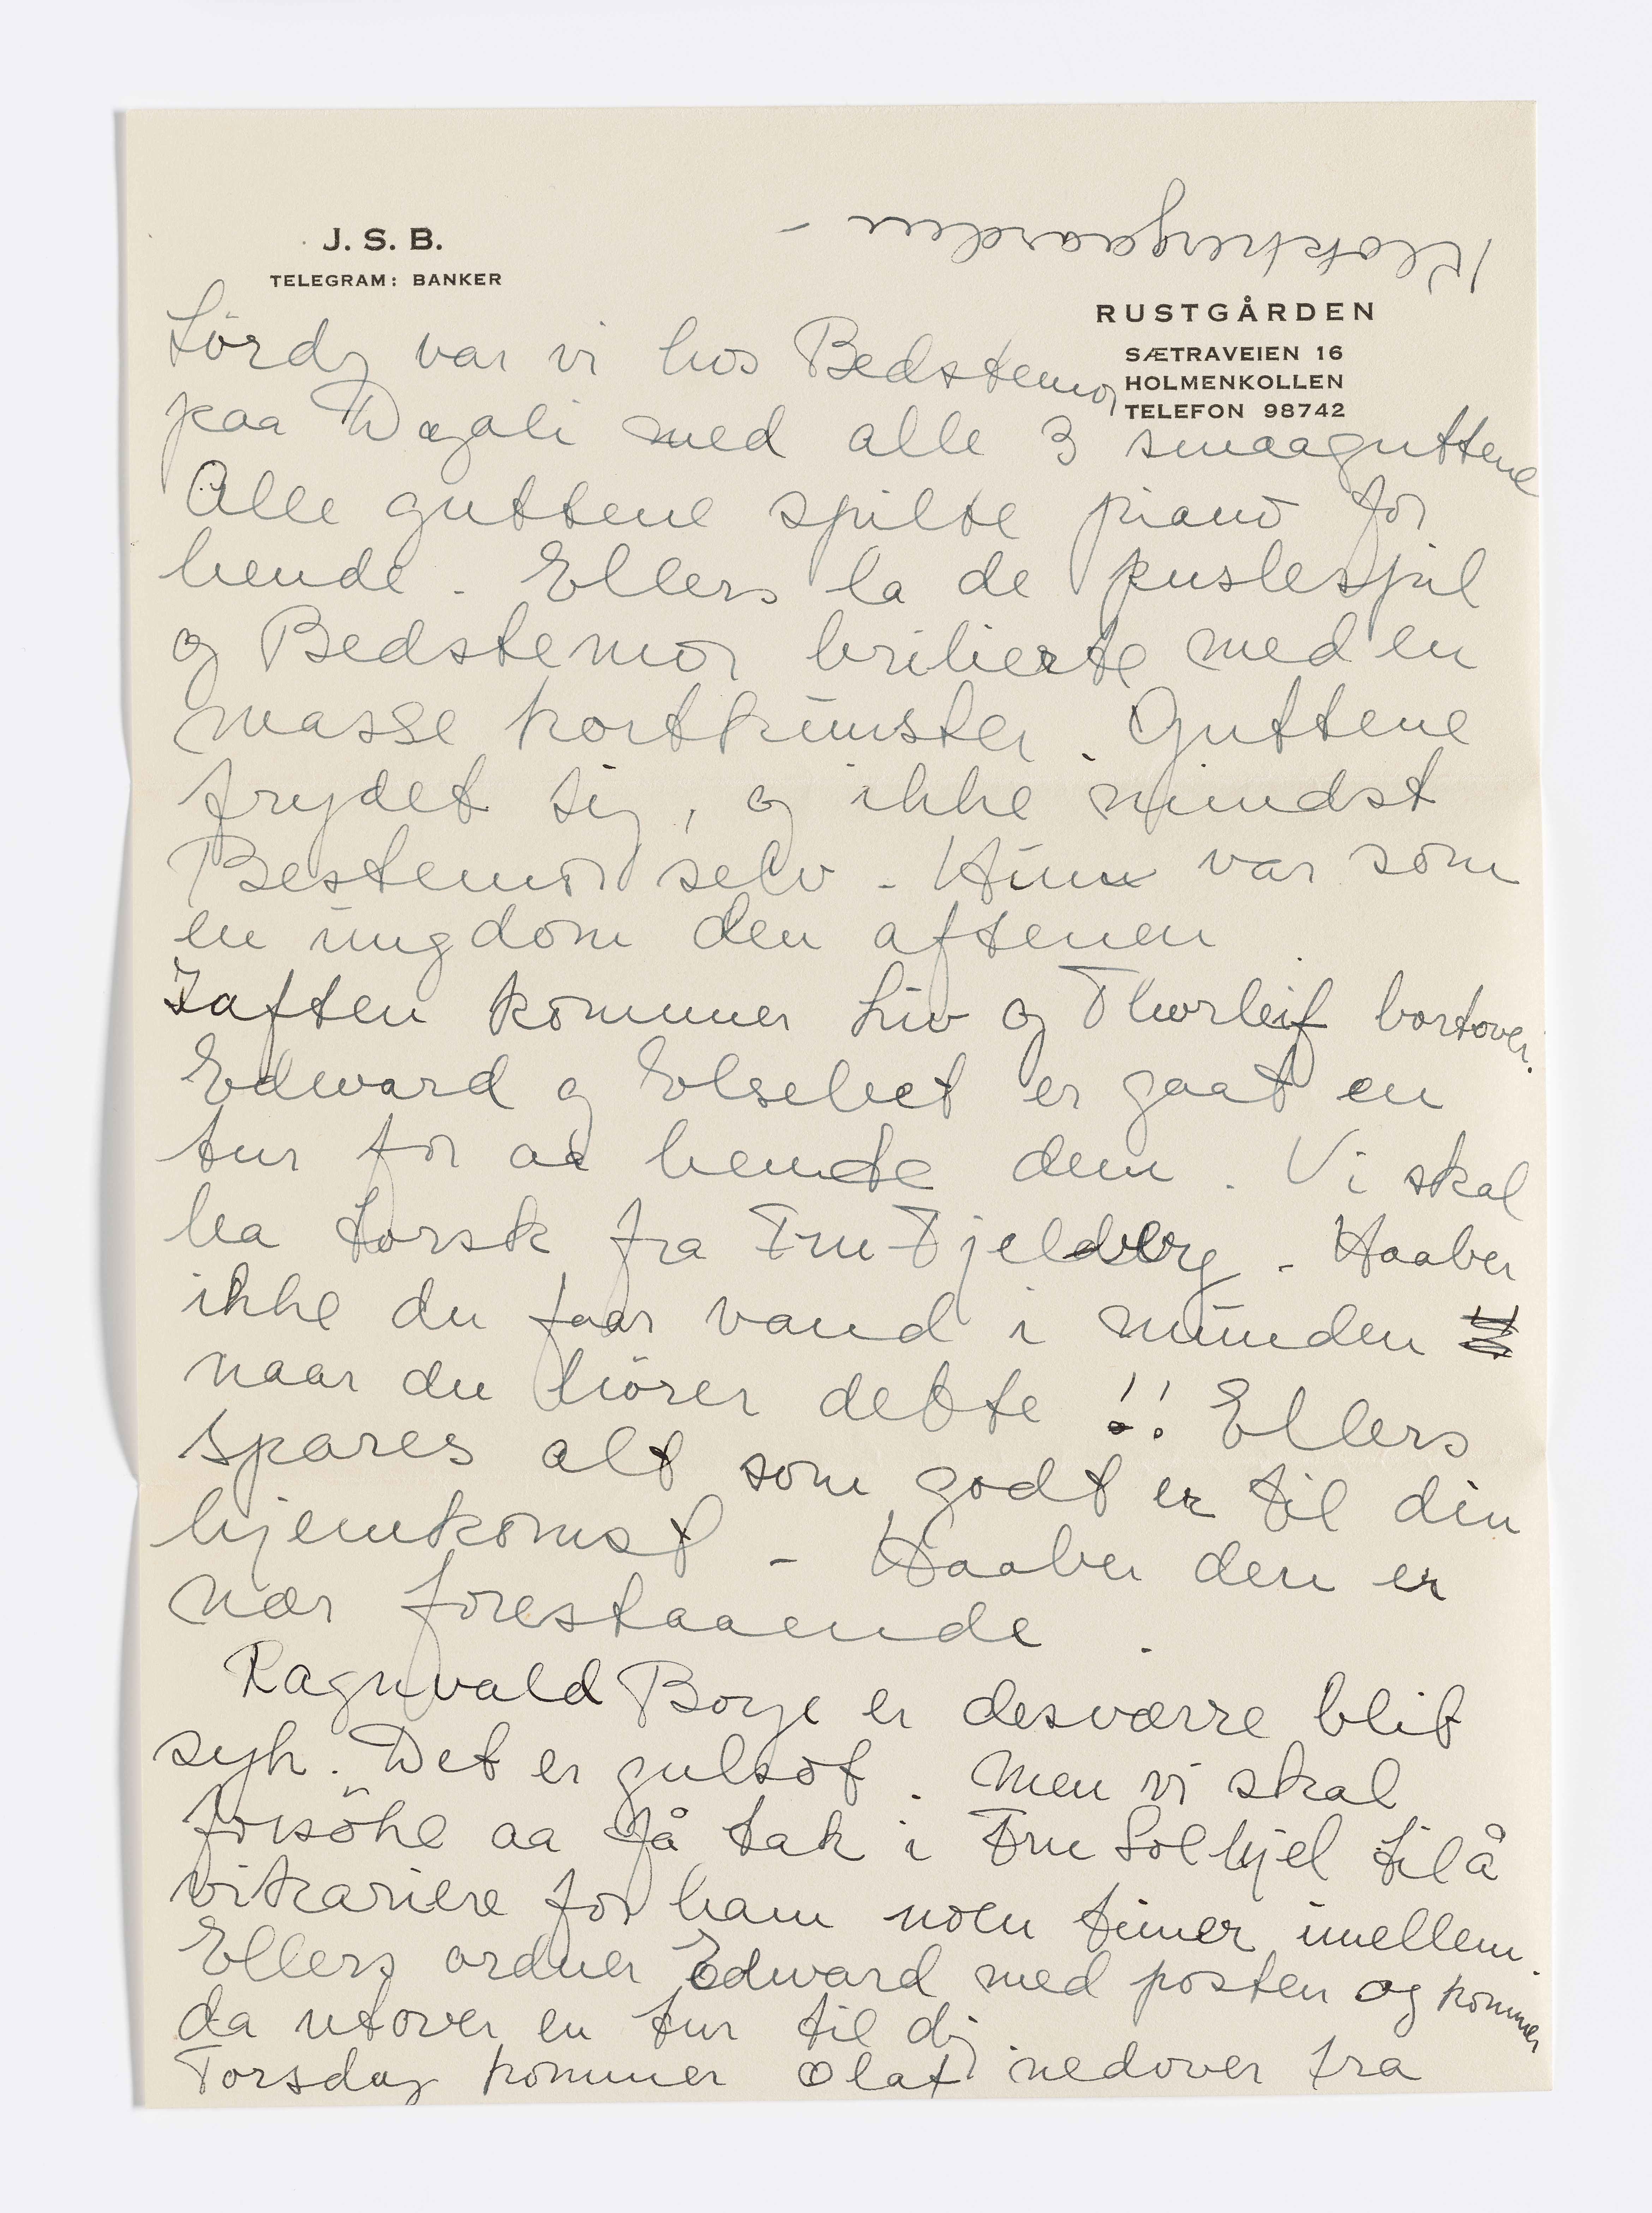 J. S. B.
TELEGRAM: BANKER
Klokkergaarden –
RUSTGÅRDEN
SÆTRAVEIEN 16
HOLMENKOLLEN
TELEFON 98742
Lördg var vi hos Bedstemor
paa Dagali med alle 3 smaaguttene
Alle guttene spilte piano for
hende. Ellers la de puslespil
og Bedstemor brilierte med en
masse kortkunster. Guttene
frydet sig, og ikke mindst
Bestemor selv - Hun var som
en ungdom den aftenen
Iaften kommer Liv og Thorleif bortover.
Edward og Elsebet er gaat en
tur for aa hente dem. Vi skal
ha torsk fra Fru Fjeldberg - Haaber
ikke du faar vand i munden
naar du hörer dette !! Ellers
spares alt som godt er til din
hjemkomst - Haaber den er
nær forestaaende.
Ragnvald Borge er desværre blit
syk. Det er gulsot. Men vi skal
forsöke aa få tak i Fru Solhjel til å
vikariere for ham noen timer imellem.
Ellers ordner Edward med posten og kommer
da utover en tur til dig.
Torsdag kommer Olaf nedover fra